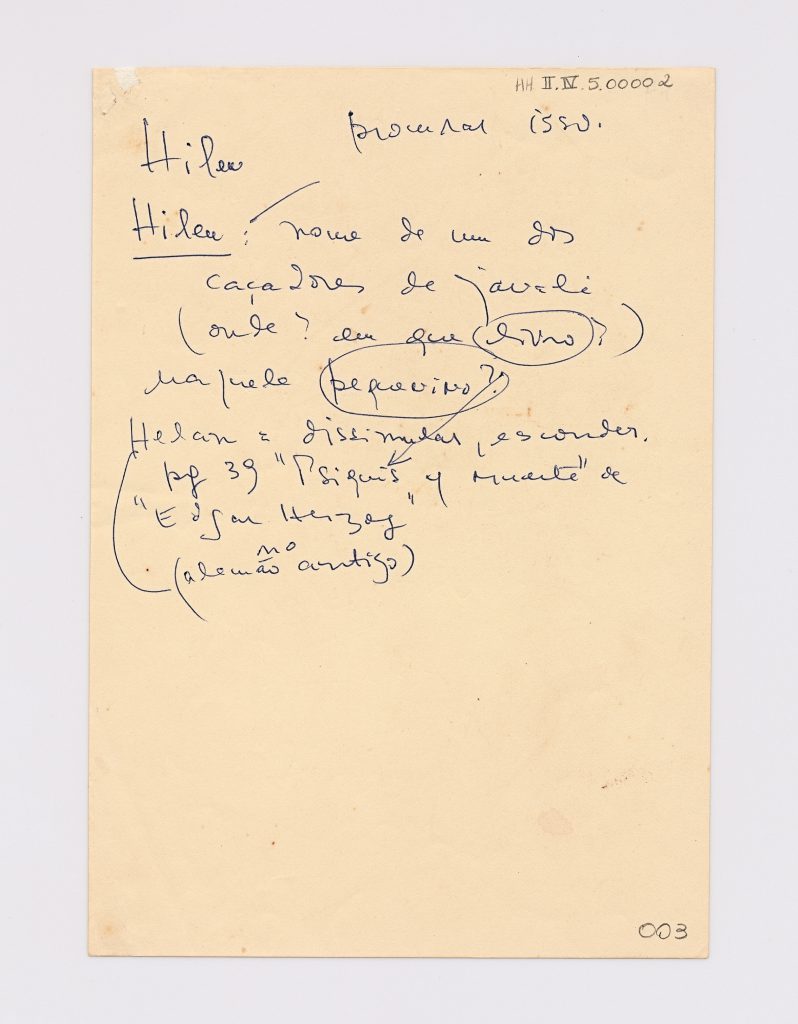 HH II.IV.5.00002
procurar isso.
Hileu
Hileu : nome de um dos
caçadores de javali
(onde ? em que livro ? )
naquele pequenino ?
Helan = dissimular, esconder.
pg 39 "Psiquis y muerte" de
"Edgar Herzog"
(alemão antigo)
no
003